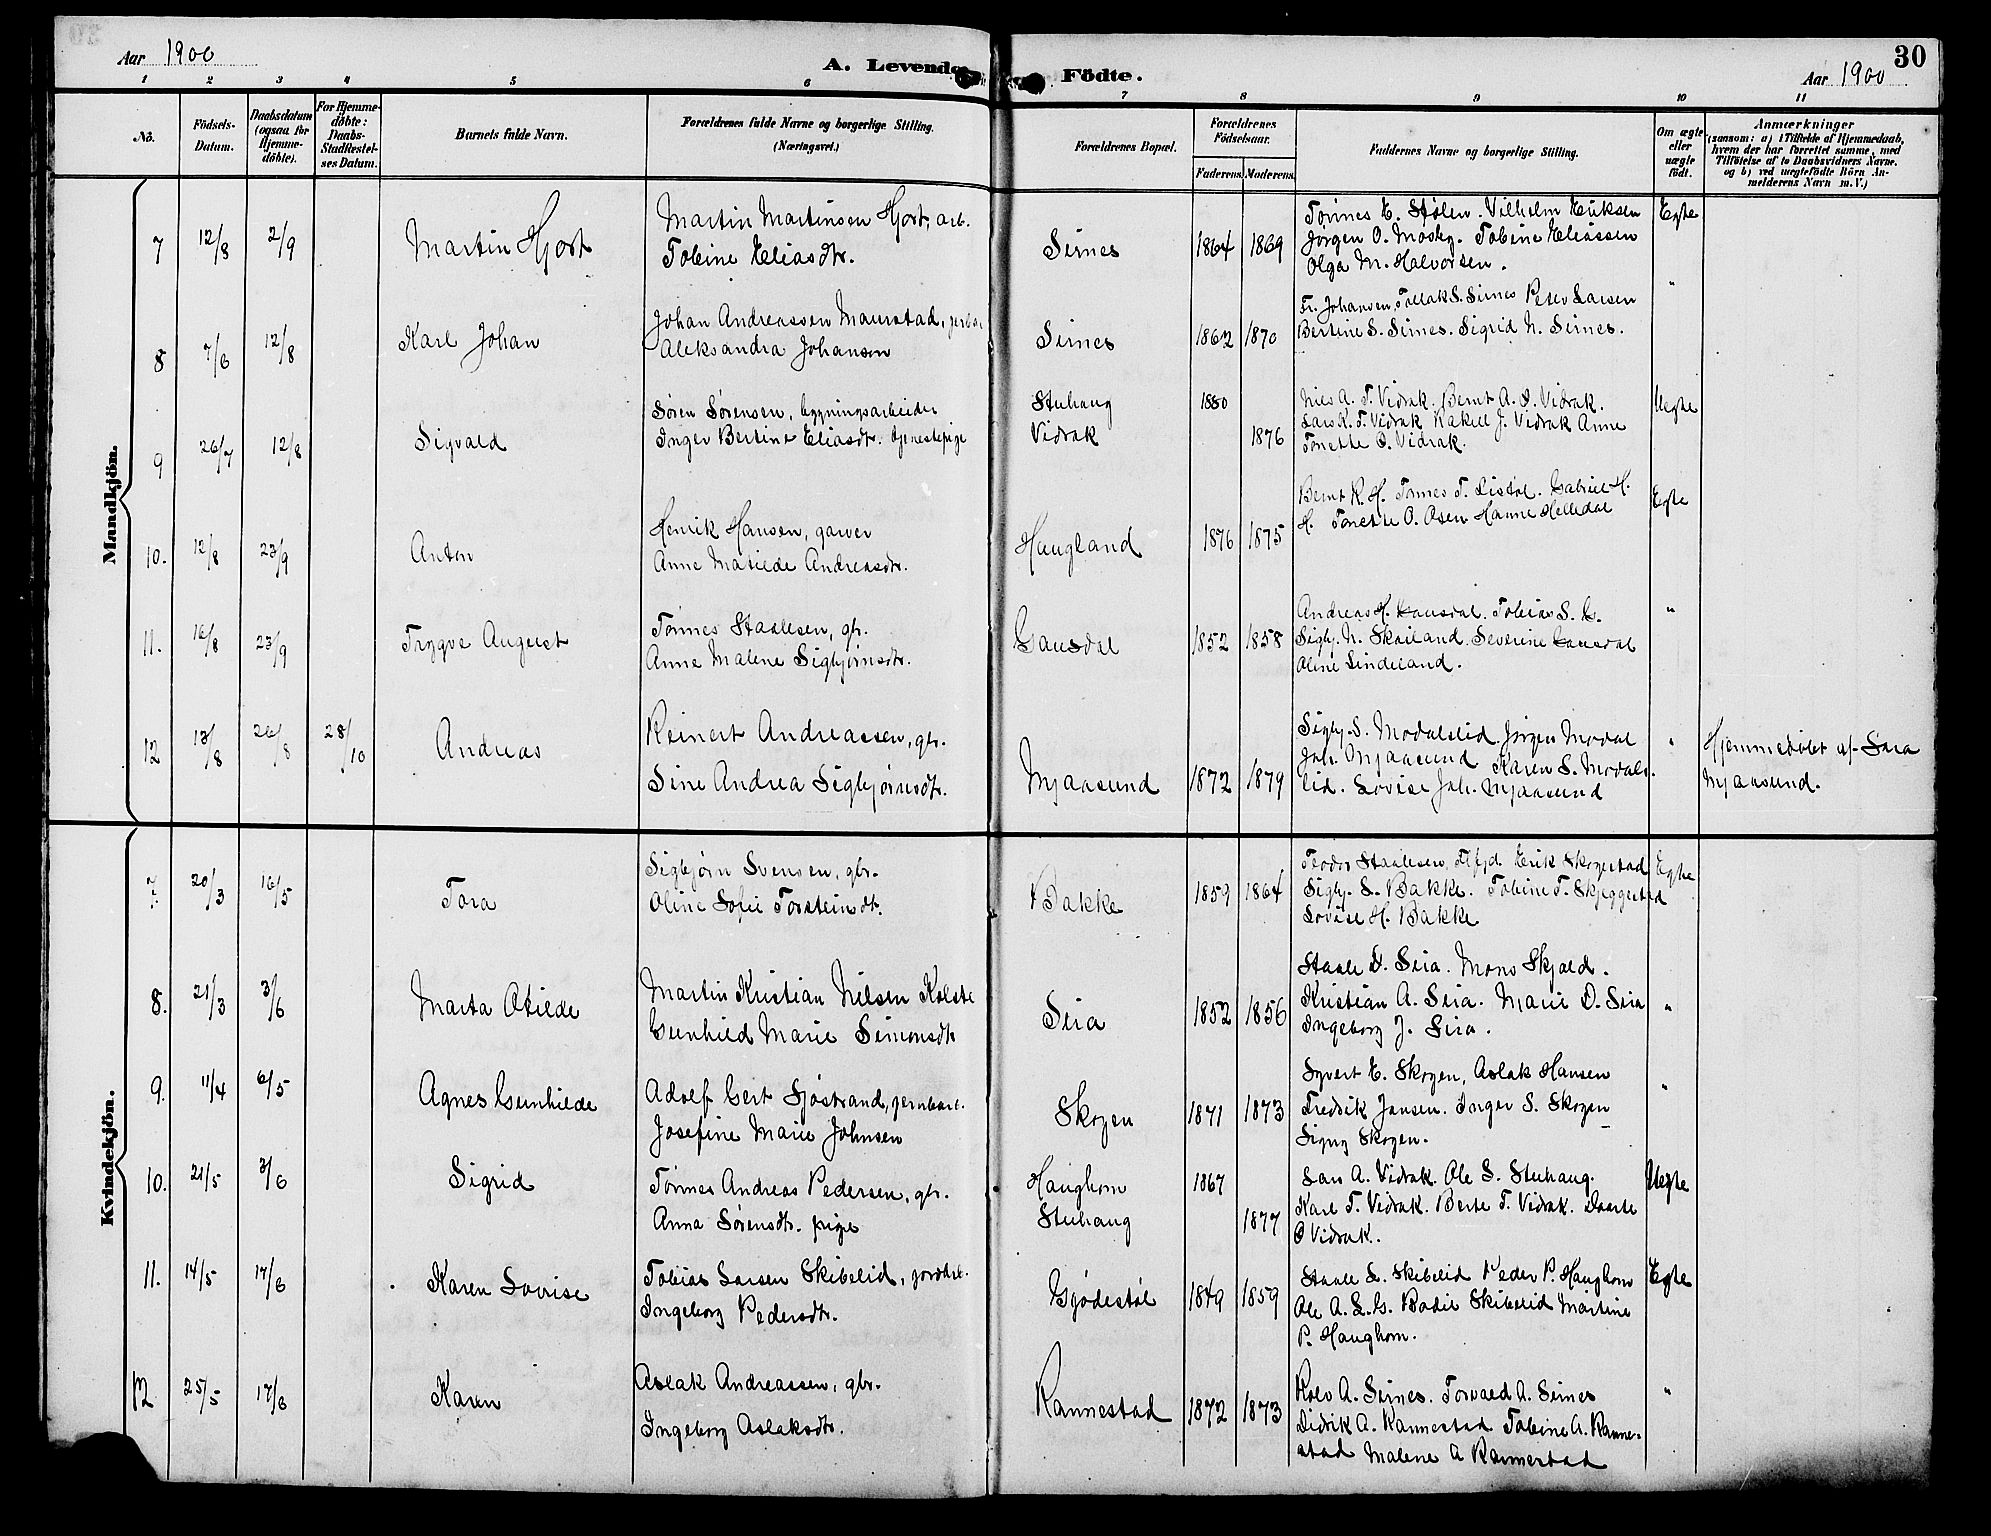 Aar 1900
A. Levende Födte.
Aar 1900
30
1 2 3 4 5 6 7 8 9 10 11
No.
Födsels-Datum.
Daabsdatum (ogsaa for Hjemme-döbte).
For Hjemme-döbte: Daabs-Stadfæstel-ses Datum.
Barnets fulde Navn.
Forældrenes fulde Navne og borgerlige Stilling. (Næringsvei.)
Forældrenes Bopæl.
Forældrenes Födselsaar.
Faderens. Moderens.
Faddernes Navne og borgerlige Stilling.
Om ægte eller uægte födt.
Anmærkninger
(saasom: a) i Tilfælde af Hjemmedaab,
hvem der har forrettet samme, med
Tilföielse af to Daabsvidners Navne.
og b) ved uægtefödte Börn An-
melderens Navn m. V.)
Mandkjön.
7 12/8 2/9 Martin Hjort
Martin Martinsen Hjort, arb.
Tobine Eliasdtr.
Sirnes 1864 1869
Tønnes E. Stølen. Vilhelm Eriksen
Jørgen O. Mosby. Tobine Eliassen
Olga M. Halvorsen.
Egte
8 7/6 12/8 Karl Johan
Johan Andreassen Maurstad,
Aleksandra Johansen
Sirnes 1862 1870
Fr. Johansen, Tollak S. Sirnes Peter Larsen
Bertine S. Sirnes. Sigrid N. Sirnes.
"
9 26/7 12/8 Sigvald
Søren Sørensen, bygningsarbeider
Inger Bertine Eliasdtr. tjenestepige
Stuhaug
Vidrak
1880
1876
Nies A. T. Vidrak. Bernt A. S. Vidrak.
Lars K. T. Vidrak Rakell J. Vidrak Anne
Tonette O. Vidrak.
Uegte
10. 12/8 23/9 Anton
Henrik Hansen, garver
Anne Matilde Andreasdtr.
Haugland 1876 1875
Bernt R. H. Tønnes T. Listøl. Gabriel H.
H. Tonette O. Osen Hanne Helledal
Egte
11. 16/8 23/9 Trygve August
Tønnes Staalesen, gbr.
Anne Malene Sigbjørnsdtr.
Gausdal 1852 1858
Andreas H. Gausdal. Tobias S. G.
Sigbj. N. Skailand. Severine Gausdal
Oline Lindeland.
"
12 13/8 26/8 28/10 Andreas
Reinert Andreassen, gbr.
Sine Andrea Sigbjørnsdtr.
Mjaasund 1872 1879
Sigbj. S. Modalslid. Jørgen Modal
Joh. Mjaasund Karen S. Modals-
lid. Lovise Joh. Mjaasund
"
Hjemmedøbt af Sara
Mjaasund.
Kvindekjön.
7. 20/3 16/5 Tora
Sigbjørn Svensen, gbr.
Oline Sofie Torsteinsdtr.
Bakke 1859 1864
Teodor Staalesen, Flfjd. Erik Skogestad
Sigbj. S. Bakke. Tobine T. Skjeggestad
Lovise H. Bakke.
Egte
8. 21/3 3/6 Marta Otilde
Martin Kristian Nilsen Kolstø
Gunhild Marie Simonsdtr
Sira 1852 1856
Staale D. Sira. Mons Skjold.
Kristian A. Sira. Marie D. Sira
Ingeborg J. Sira.
"
9. 11/4 6/5 Agnes Gunhilde
Adolf Gert Sjøstrand, jernbarb.
Josefine Marie Johnsen
Skogen 1871 1873
Syvert E. Skogen, Aslak Hansen
Fredrik Jansen. Inger S. Skogen
Signy Skogen.
"
10. 21/5 3/6 Sigrid
Tønnes Andreas Pedersen, gbr.
Anna Sørensdtr. pige
Haughom
Stuhaug
1867
1877
Lars A. Vidrak. Ole S. Stuhaug.
Karl T. Vidrak. Berte T. Vidrak. Dorte
O Vidrak.
Uegte
11. 14/5 17/6 Karen Lovise
Tobias Larsen Skibelid, jordbr.
Ingeborg Pedersdtr.
Gjødestøl 1849 1859
Staale L. Skibelid Peder P. Haughom
Ole A. L. G. Bodil Skibelid Martine
P. Haughom.
Egte
12 25/5 17/6 Karen
Aslak Andreassen, gbr.
Ingeborg Aslaksdtr.
Rannestad 1872 1873
Rolv A. Sirnes. Torvald A. Sirnes
Didrik A. Rannestad Tobine A. Ranne-
stad Malene A Rannestad
"